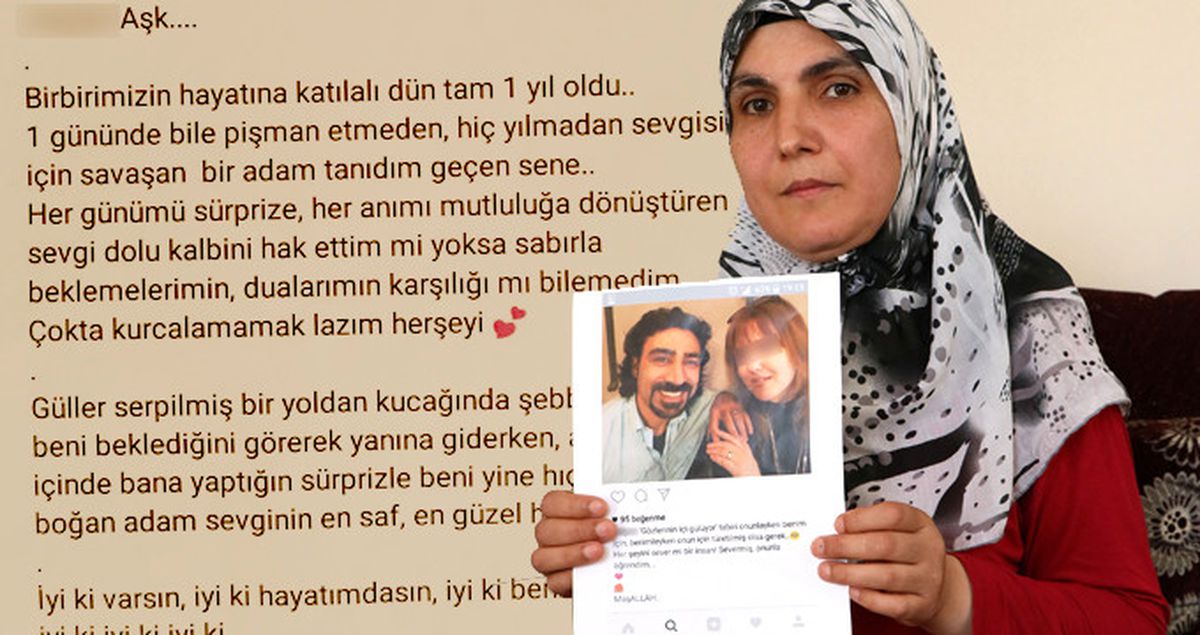 Aşk....
.
Birbirimizin hayatına katılalı dün tam 1 yıl oldu..
1 gününde bile pişman etmeden, hiç yılmadan sevgisi
için savaşan bir adam tanıdım geçen sene..
Her günümü sürprize, her anımı mutluluğa dönüştüren
sevgi dolu kalbini hak ettim mi yoksa sabırla
beklemelerimin, dualarımın karşılığı mı bilemedim
Çokta kurcalamamak lazım herşeyi 💕
.
Güller serpilmiş bir yoldan kucağında şebb
beni beklediğini görerek yanına giderken, a
içinde bana yaptığın sürprizle beni yine hıç
boğan adam sevginin en saf, en güzel h
.
İyi ki varsın, iyi ki hayatımdasın, iyi ki ben
iyi ki iyi ki iyi ki
95 beğenme
'Gözlerinin içi gülüyor' tabiri onunlayken benim
için, benimleyken onun için türetilmiş olsa gerek..
Her şeyini sever mi bir insan! Severmiş, onunla
öğrendim...
MaşALLAH..